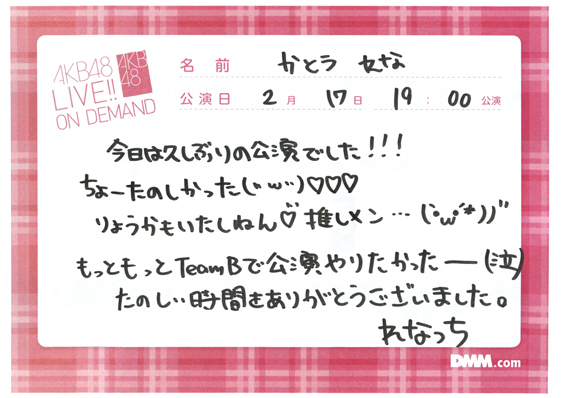 AKB48
LIVE!!
ON DEMAND
AKB
48
名前 かとう れな
公演日 2月 17日 19:00 公演
今日は久しぶりの公演でした!!!
ちょーたのしかった(*´ω`*)♡♡♡
りょうかもいたしねん♡推しメン…(*´ω`*))"
もっともっとTeamBで公演やりたかったー(泣)
たのしい時間をありがとうございました。
れなっち
DMM.com